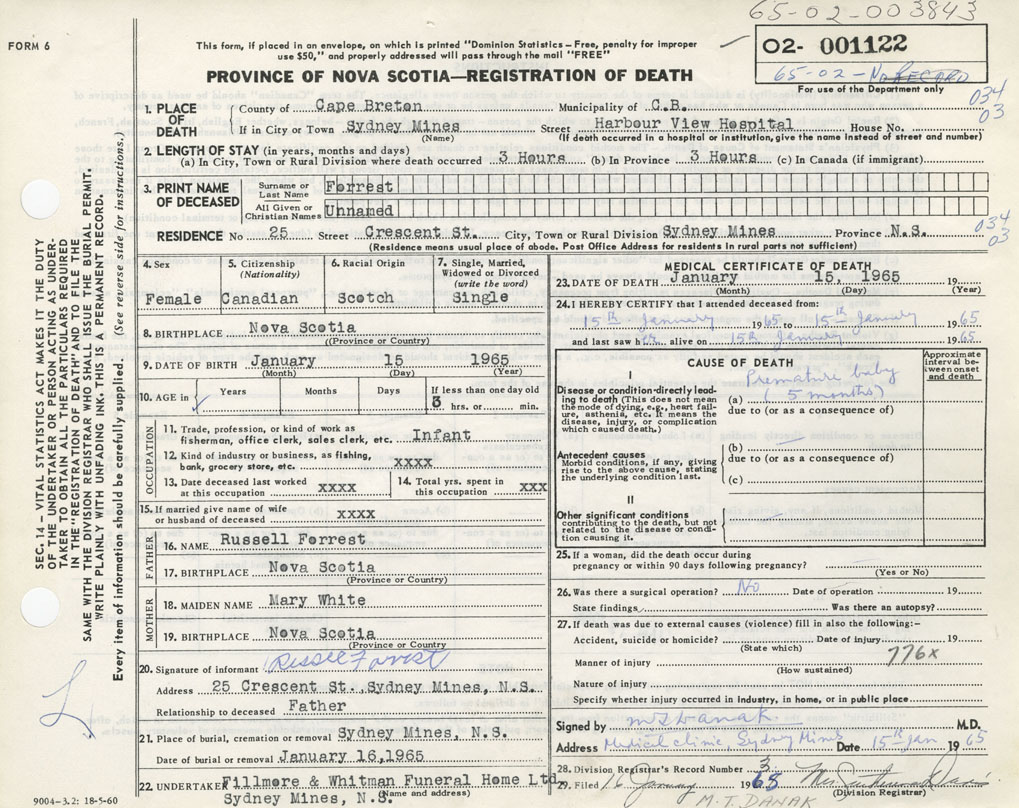 65-02-003843
FORM 6
This form, if placed in an envelope, on which is printed "Dominion Statistics – Free, penalty for improper
use $50," and properly addressed will pass through the mail "FREE"
02- 001122
65-02-No RECORD
For use of the Department only
PROVINCE OF NOVA SCOTIA—REGISTRATION OF DEATH
034
03
1. PLACE OF DEATH County of Cape Breton Municipality of C.B.
If in City or Town Sydney Mines Street Harbour View Hospital House No.
(Name) (If death occurred in a hospital or institution, give the name instead of street and number)
2. LENGTH OF STAY (in years, months and days)
(a) In City, Town or Rural Division where death occurred 3 Hours (b) In Province 3 Hours (c) In Canada (if immigrant)
3. PRINT NAME OF DECEASED Surname or Last Name Forrest
All Given or Christian Names Unnamed
RESIDENCE No 25 Street Crescent St. City, Town or Rural Division Sydney Mines Province N.S.
034
03
(Residence means usual place of abode. Post Office Address for residents in rural parts not sufficient)
4. Sex Female
5. Citizenship (Nationality) Canadian
6. Racial Origin Scotch
7. Single, Married, Widowed or Divorced (write the word) Single
8. BIRTHPLACE Nova Scotia
(Province or Country)
9. DATE OF BIRTH January 15 1965
(Month) (Day) (Year)
10. AGE in Years Months Days If less than one day old
3 hrs. or min.
OCCUPATION
11. Trade, profession, or kind of work as
fisherman, office clerk, sales clerk, etc. Infant
12. Kind of industry or business, as fishing,
bank, grocery store, etc. XXXX
13. Date deceased last worked
at this occupation XXXX
14. Total yrs. spent in
this occupation XXX
15. If married give name of wife
or husband of deceased XXXX
FATHER
16. NAME Russell Forrest
17. BIRTHPLACE Nova Scotia
(Province or Country)
MOTHER
18. MAIDEN NAME Mary White
19. BIRTHPLACE Nova Scotia
(Province or Country)
20. Signature of informant Russell Forrest
Address 25 Crescent St., Sydney Mines, N.S.
Relationship to deceased Father
21. Place of burial, cremation or removal Sydney Mines, N.S.
Date of burial or removal January 16,1965
22. UNDERTAKER Fillmore & Whitman Funeral Home Ltd.
(Name and address)
Sydney Mines, N.S.
MEDICAL CERTIFICATE OF DEATH
23. DATE OF DEATH January 15, 1965 19
(Month) (Day) (Year)
24. I HEREBY CERTIFY that I attended deceased from:
15th January 1965 to 15th January 1965
and last saw her alive on 15th January 1965
CAUSE OF DEATH
Approximate interval between onset and death
I
Disease or condition directly leading to death (This does not mean
the mode of dying, e.g., heart failure, asthenia, etc. It means the
disease, injury, or complication
which caused death.)
(a) Premature baby
(5 months)
due to (or as a consequence of)
Antecedent causes
Morbid conditions, if any, giving
rise to the above cause, stating
the underlying condition last.
(b)
due to (or as a consequence of)
(c)
II
Other significant conditions
contributing to the death, but not
related to the disease or condition causing it.
25. If a woman, did the death occur during
pregnancy or within 90 days following pregnancy?
(Yes or No)
26. Was there a surgical operation? No Date of operation 19
State findings Was there an autopsy?
27. If death was due to external causes (violence) fill in also the following:-
Accident, suicide or homicide? Date of injury 19
(State which)
776x
Manner of injury
(How sustained)
Nature of injury
Specify whether injury occurred in industry, in home, or in public place
Signed by M.D.
Address Medical clinic, Sydney Mines Date 15th Jan 1965
28. Division Registrar's Record Number 3
29. Filed 16 January 1965 Mrs.
(Division Registrar)
M. J. DANAK
9004-3.2: 18-5-60
SEC. 14 – VITAL STATISTICS ACT MAKES IT THE DUTY
OF THE UNDERTAKER OR PERSON ACTING AS UNDERTAKER TO OBTAIN ALL THE PARTICULARS REQUIRED
IN THE "REGISTRATION OF DEATH" AND TO FILE THE
SAME WITH THE DIVISION REGISTRAR WHO SHALL ISSUE THE BURIAL PERMIT.
WRITE PLAINLY WITH UNFADING INK. THIS IS A PERMANENT RECORD.
Every item of information should be carefully supplied. (See reverse side for instructions.)